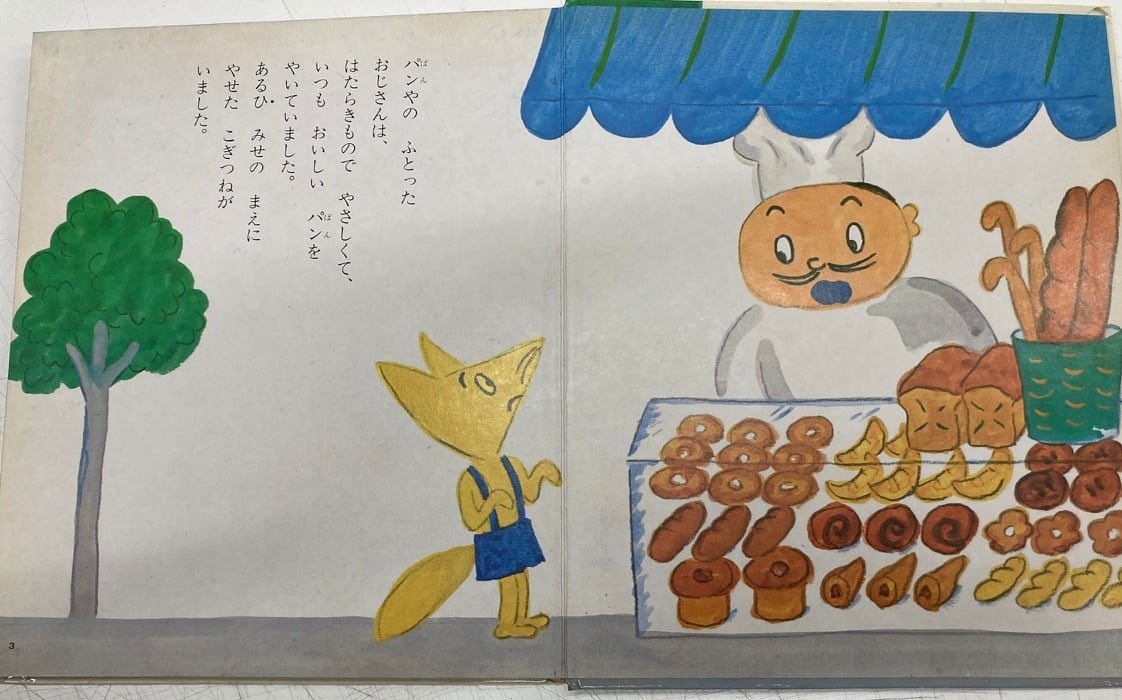 パンやの　ふとった
おじさんは、
はたらきもので　やさしくて、
いつも　おいしい　パンを
やいていました。
あるひ　みせの　まえに
やせた　こぎつねが
いました。
3